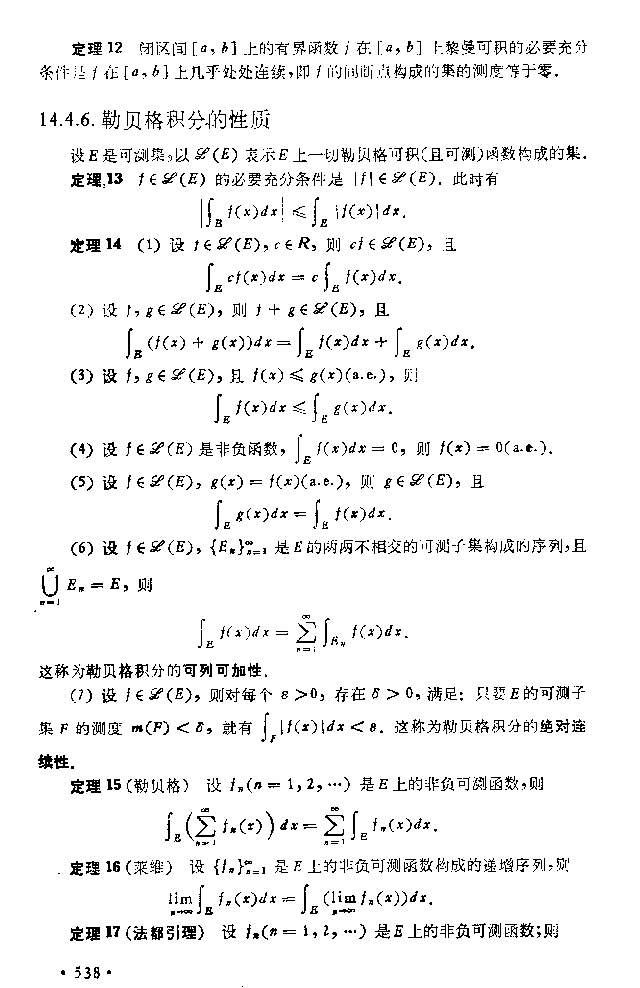 定理 12 闭区间 [a, b] 上的有界函数 f 在 [a, b] 上黎曼可积的必要充分
条件是 f 在 [a, b] 上几乎处处连续,即 f 的间断点构成的集的测度等于零.
14.4.6. 勒贝格积分的性质
设 E 是可测集,以 ℒ(E) 表示 E 上一切勒贝格可积(且可测)函数构成的集.
定理 13 f ∈ ℒ(E) 的必要充分条件是 |f| ∈ ℒ(E). 此时有
|∫_E f(x)dx| ≤ ∫_E |f(x)|dx.
定理 14 (1) 设 f ∈ ℒ(E), c ∈ R, 则 cf ∈ ℒ(E), 且
∫_E cf(x)dx = c∫_E f(x)dx.
(2) 设 f, g ∈ ℒ(E), 则 f + g ∈ ℒ(E), 且
∫_E (f(x) + g(x))dx = ∫_E f(x)dx + ∫_E g(x)dx.
(3) 设 f, g ∈ ℒ(E), 且 f(x) ≤ g(x)(a.e.), 则
∫_E f(x)dx ≤ ∫_E g(x)dx.
(4) 设 f ∈ ℒ(E) 是非负函数, ∫_E f(x)dx = 0, 则 f(x) = 0(a.e.).
(5) 设 f ∈ ℒ(E), g(x) = f(x)(a.e.), 则 g ∈ ℒ(E), 且
∫_E g(x)dx = ∫_E f(x)dx.
(6) 设 f ∈ ℒ(E), {E_n}_{n=1}^∞ 是 E 的两两不相交的可测子集构成的序列,且
⋃_{n=1}^∞ E_n = E, 则
∫_E f(x)dx = ∑_{n=1}^∞ ∫_{E_n} f(x)dx.
这称为勒贝格积分的可列可加性.
(7) 设 f ∈ ℒ(E), 则对每个 ε > 0, 存在 δ > 0, 满足: 只要 E 的可测子
集 F 的测度 m(F) < δ, 就有 ∫_F |f(x)|dx < ε. 这称为勒贝格积分的绝对连
续性.
定理 15 (勒贝格) 设 f_n(n = 1, 2, ⋯) 是 E 上的非负可测函数,则
∫_E (∑_{n=1}^∞ f_n(x)) dx = ∑_{n=1}^∞ ∫_E f_n(x)dx.
定理 16 (莱维) 设 {f_n}_{n=1}^∞ 是 E 上的非负可测函数构成的递增序列,则
lim_{n→∞} ∫_E f_n(x)dx = ∫_E (lim_{n→∞} f_n(x))dx.
定理 17 (法都引理) 设 f_n(n = 1, 2, ⋯) 是 E 上的非负可测函数;则
• 538 •